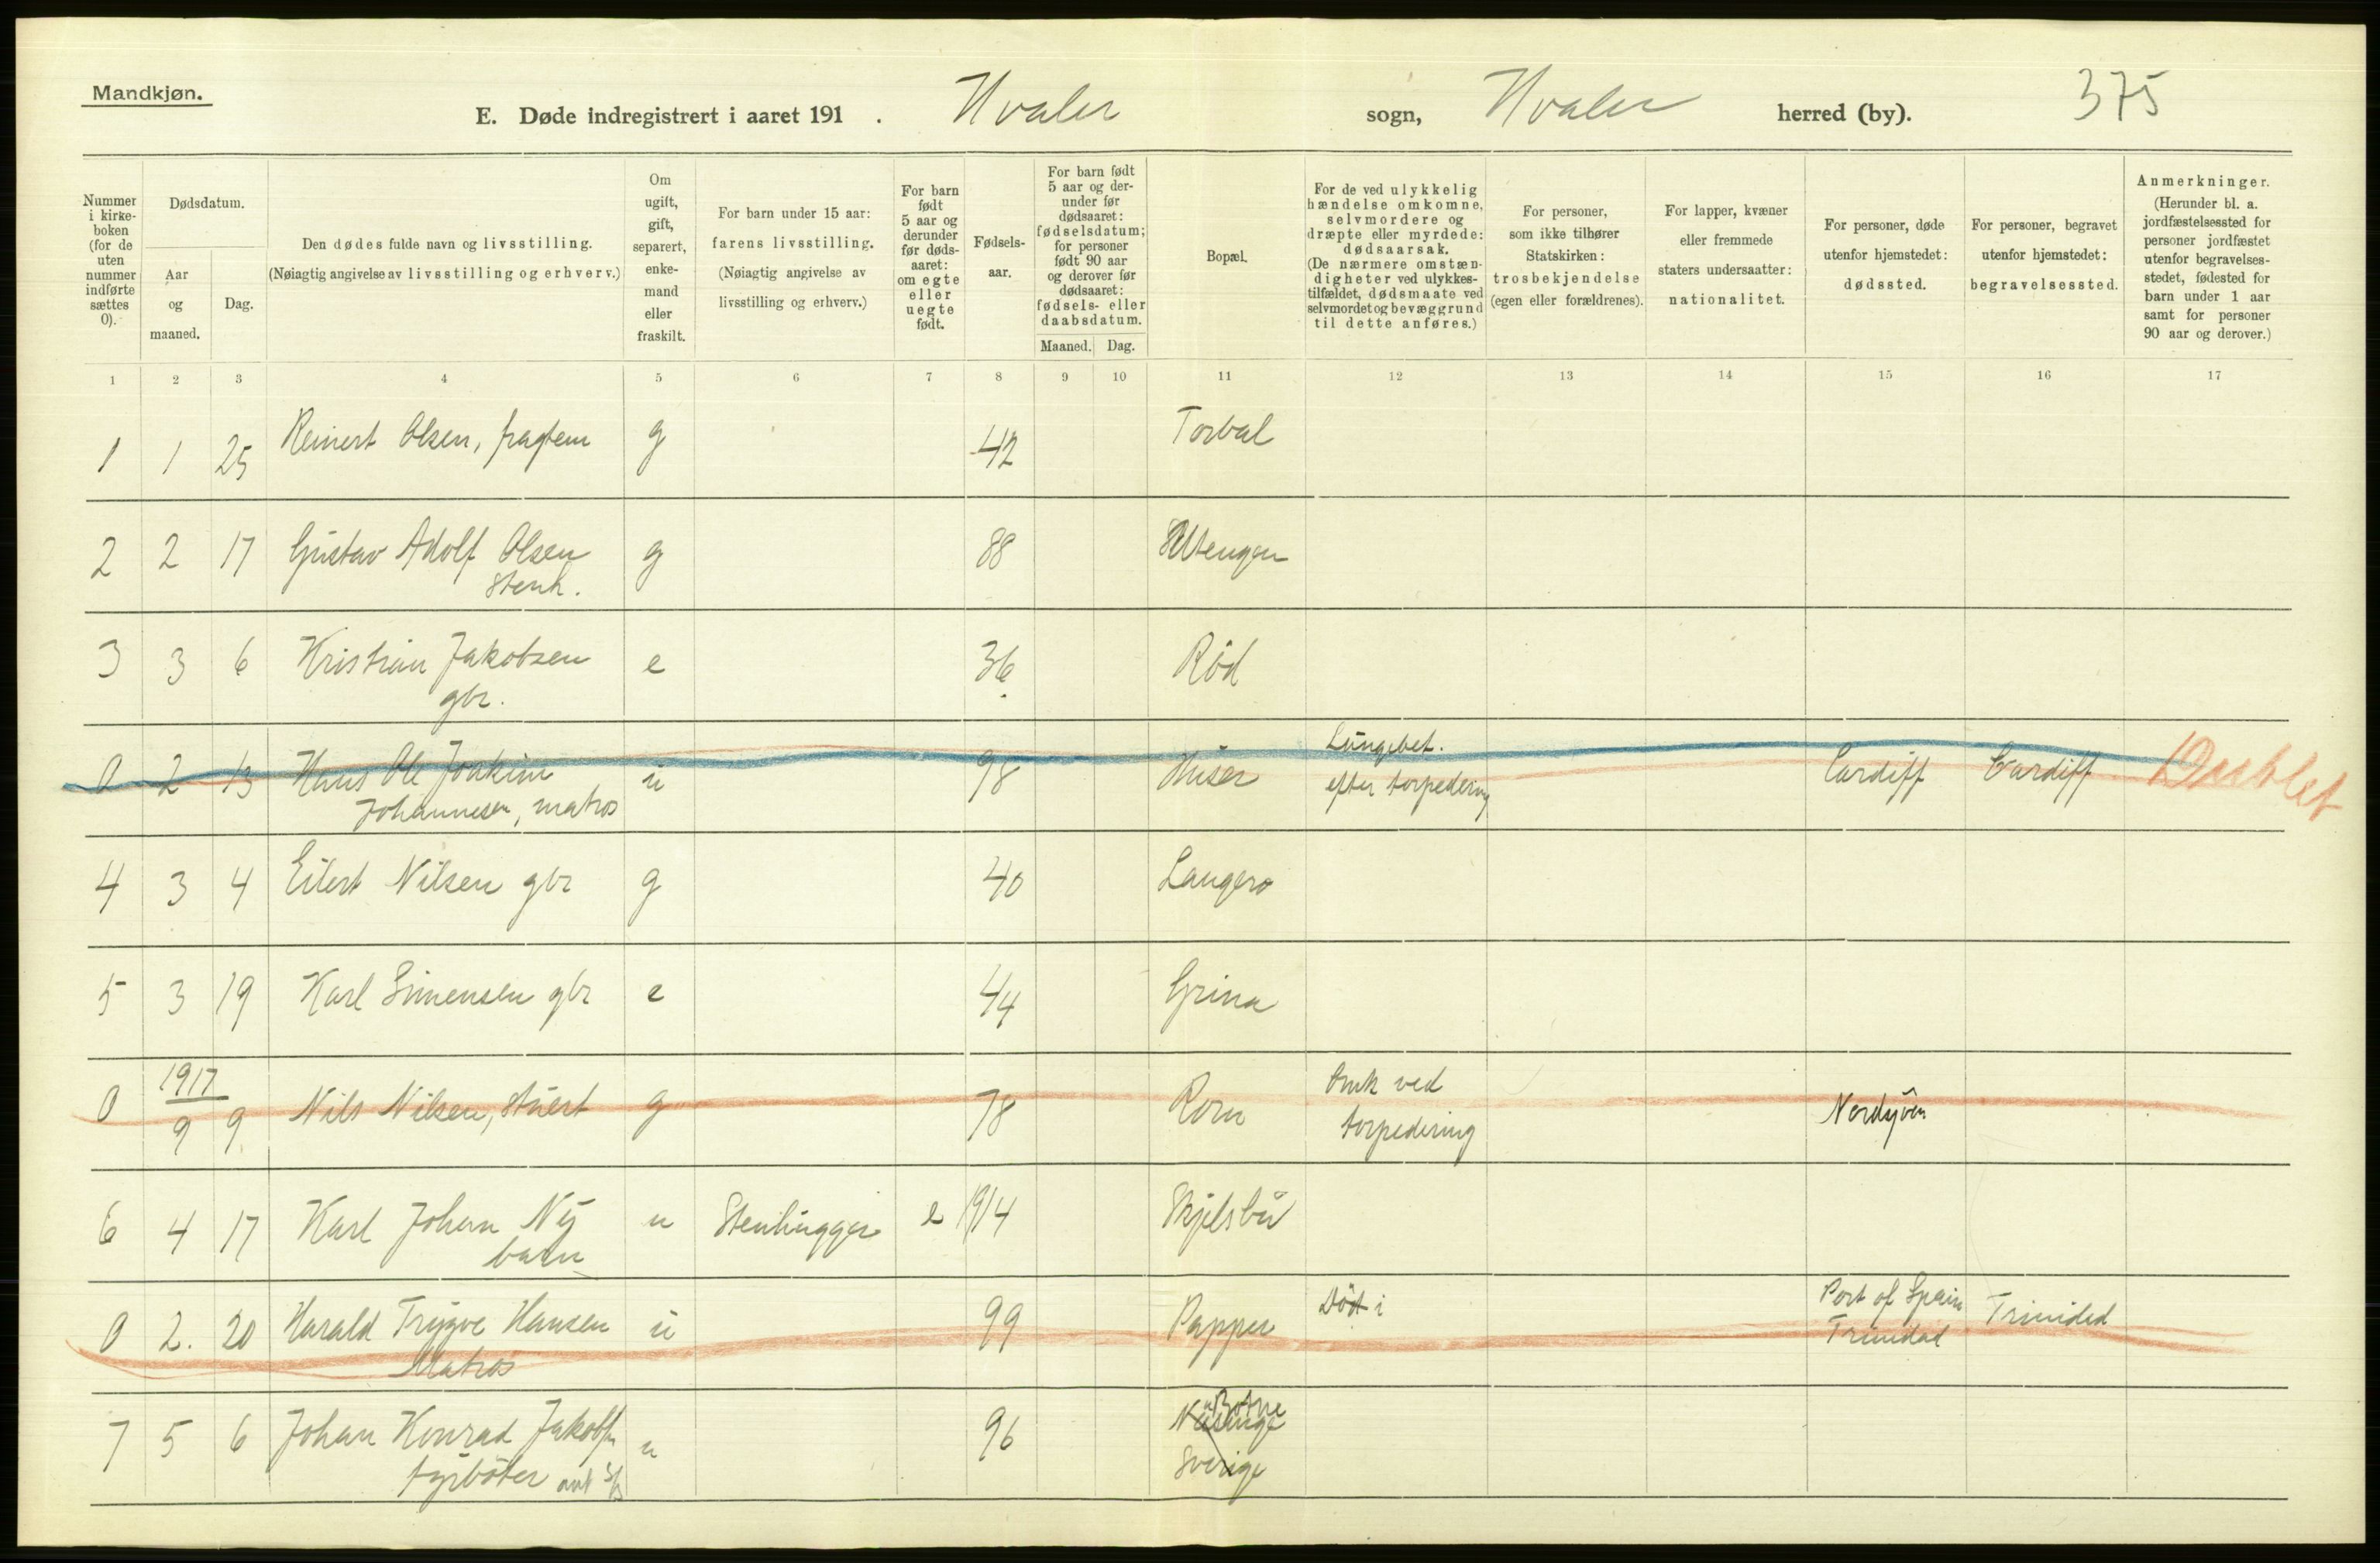 Mandkjøn.
E. Døde indregistrert i aaret 191 . Hvaler sogn, Hvaler herred (by). 375
Nummer i kirke-boken (for de uten nummer indførte sættes 0).
Dødsdatum.
Aar og maaned.
Dag.
Den dødes fulde navn og livsstilling.
(Nøiagtig angivelse av livsstilling og erhverv.)
Om ugift, gift, separert, enke-mand eller fraskilt.
For barn under 15 aar:
farens livsstilling.
(Nøiagtig angivelse av
livsstilling og erhverv.)
For barn født 5 aar og derunder før døds-aaret: om egte eller uegte født.
Fødsels-aar.
For barn født 5 aar og der-under før dødsaaret: fødselsdatum; for personer født 90 aar og derover før dødsaaret: fødsels- eller daabsdatum.
Maaned. Dag.
Bopæl.
For de ved ulykkelig hændelse omkomne, selvmordere og dræpte eller myrdede: dødsaarsak.
(De nærmere omstæn-digheter ved ulykkes-tilfældet, dødsmaate ved selvmordet og bevæggrund til dette anføres.)
For personer, som ikke tilhører Statskirken: trosbekjendelse (egen eller forældrenes).
For lapper, kvæner eller fremmede staters undersaatter: nationalitet.
For personer, døde utenfor hjemstedet: dødssted.
For personer, begravet utenfor hjemstedet: begravelsessted.
Anmerkninger.
(Herunder bl. a. jordfæstelsessted for personer jordfæstet utenfor begravelses-stedet, fødested for barn under 1 aar samt for personer 90 aar og derover.)
1 2 3 4 5 6 7 8 9 10 11 12 13 14 15 16 17
1 1 25 Reinert Olsen, fragtem g 42 Torbal
2 2 17 Gustav Adolf Olsen g 88
stenh.
3 3 6 Kristian Jakobsen e 36 Röd
gbr.
0 2 13 Hans Ole Joakim u 98 Huser Lungebet. Cardiff Cardiff Dublet
Johannesen, matros efter torpedering
4 3 4 Eilert Nilsen gbr g 40 Laugero
5 3 19 Karl Simensen gbr e 44 Grina
1917
0 9 9 Nils Nilsen, stuert g 78 Rorn Omk ved
torpedering Nordsjöen
6 4 17 Karl Johan Ny u Stenhugger e 1914 Skjelsbu
barn
0 2. 20 Harald Trygve Hansen u 99 Papper Död i Port of Spain Trinidad
Matros Trinidad
7 5 6 Johan Konrad Jakobs u 96
fyrböter
Sverige